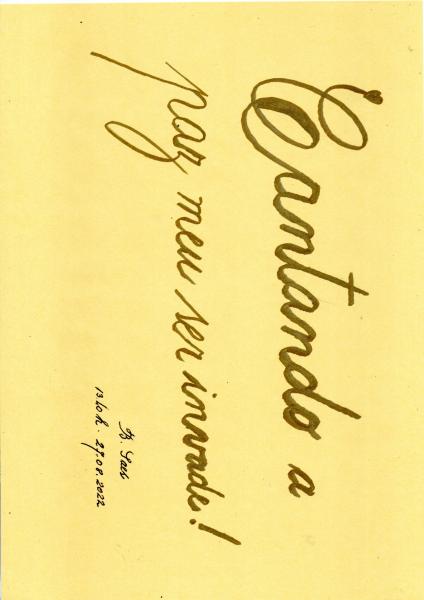 Cantando a
paz meu ser invade!
B. Saes
13:40h. 27.08.2022